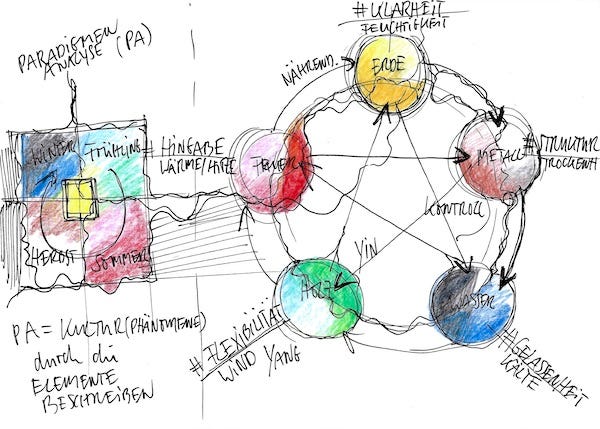 PARADIGMEN
ANALYSE (PA)
WINTER
FRÜHLING
HERBST
SOMMER
PA = KULTUR (PHÄNOMENE)
durch die
ELEMENTE
BESCHREIBEN
#KLARHEIT
FEUCHTIGKEIT
NÄHREND
ERDE
#HINGABE
WÄRME/HITZE
FEUER
METALL
#STRUKTUR
TROCKENH
KONTROLL
YIN
HOLZ
WASSER
#FLEXIBILITÄT
WIND YANG
#GELASSENHEIT
KÄLTE